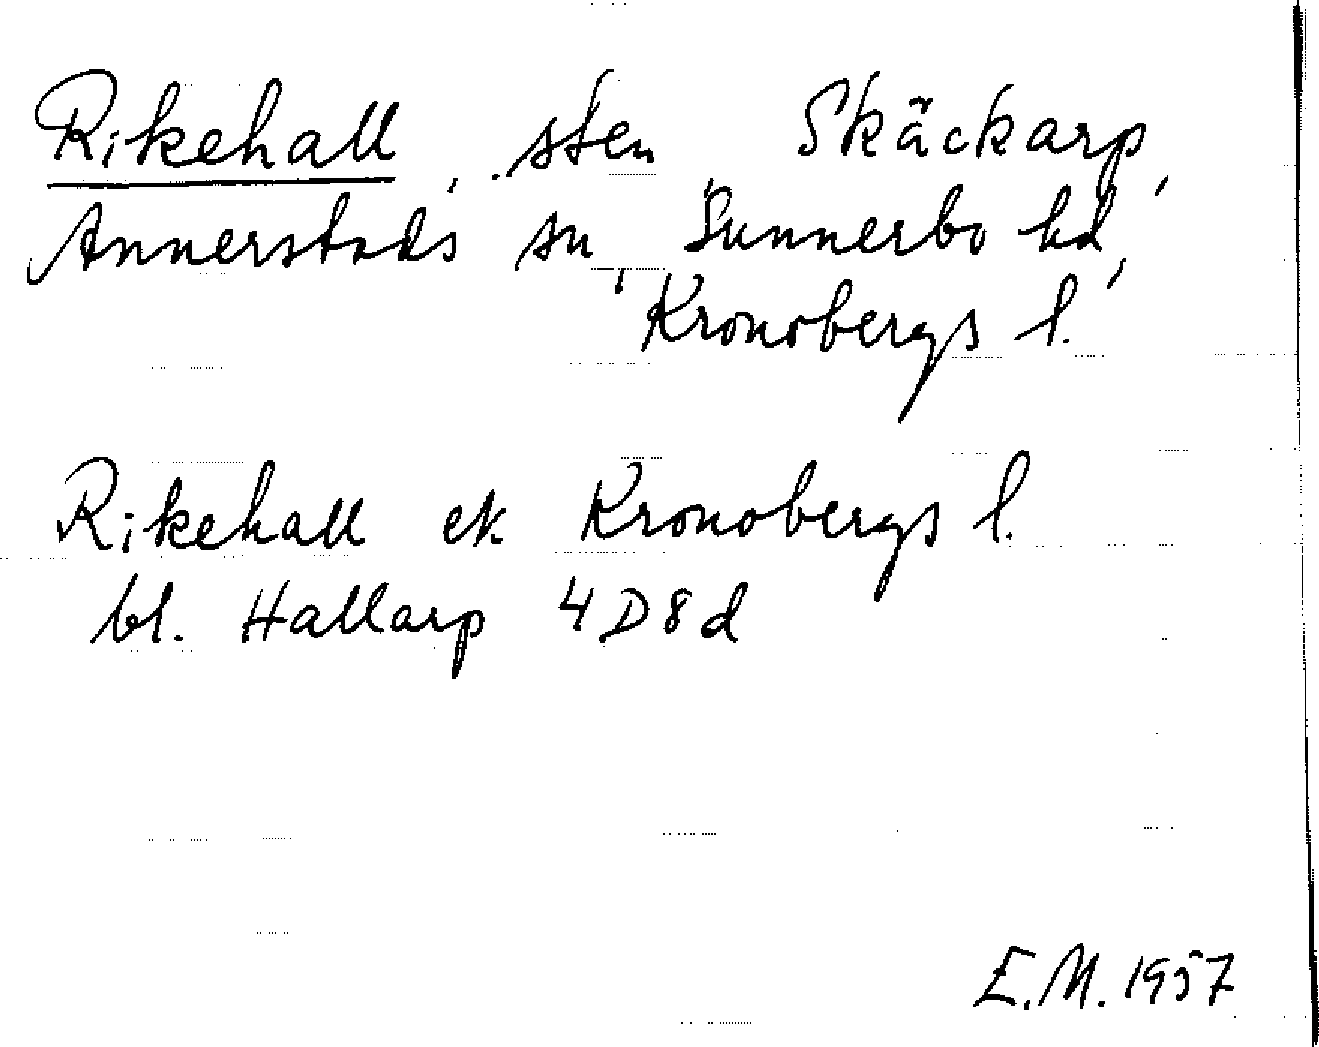 Rikehall, sten Skäckarp,
Annerstads sn, Sunnerbo hd,
Kronobergs l.
Rikehall ek Kronobergs l.
bl. Hallarp 4D8d
E.M. 1957